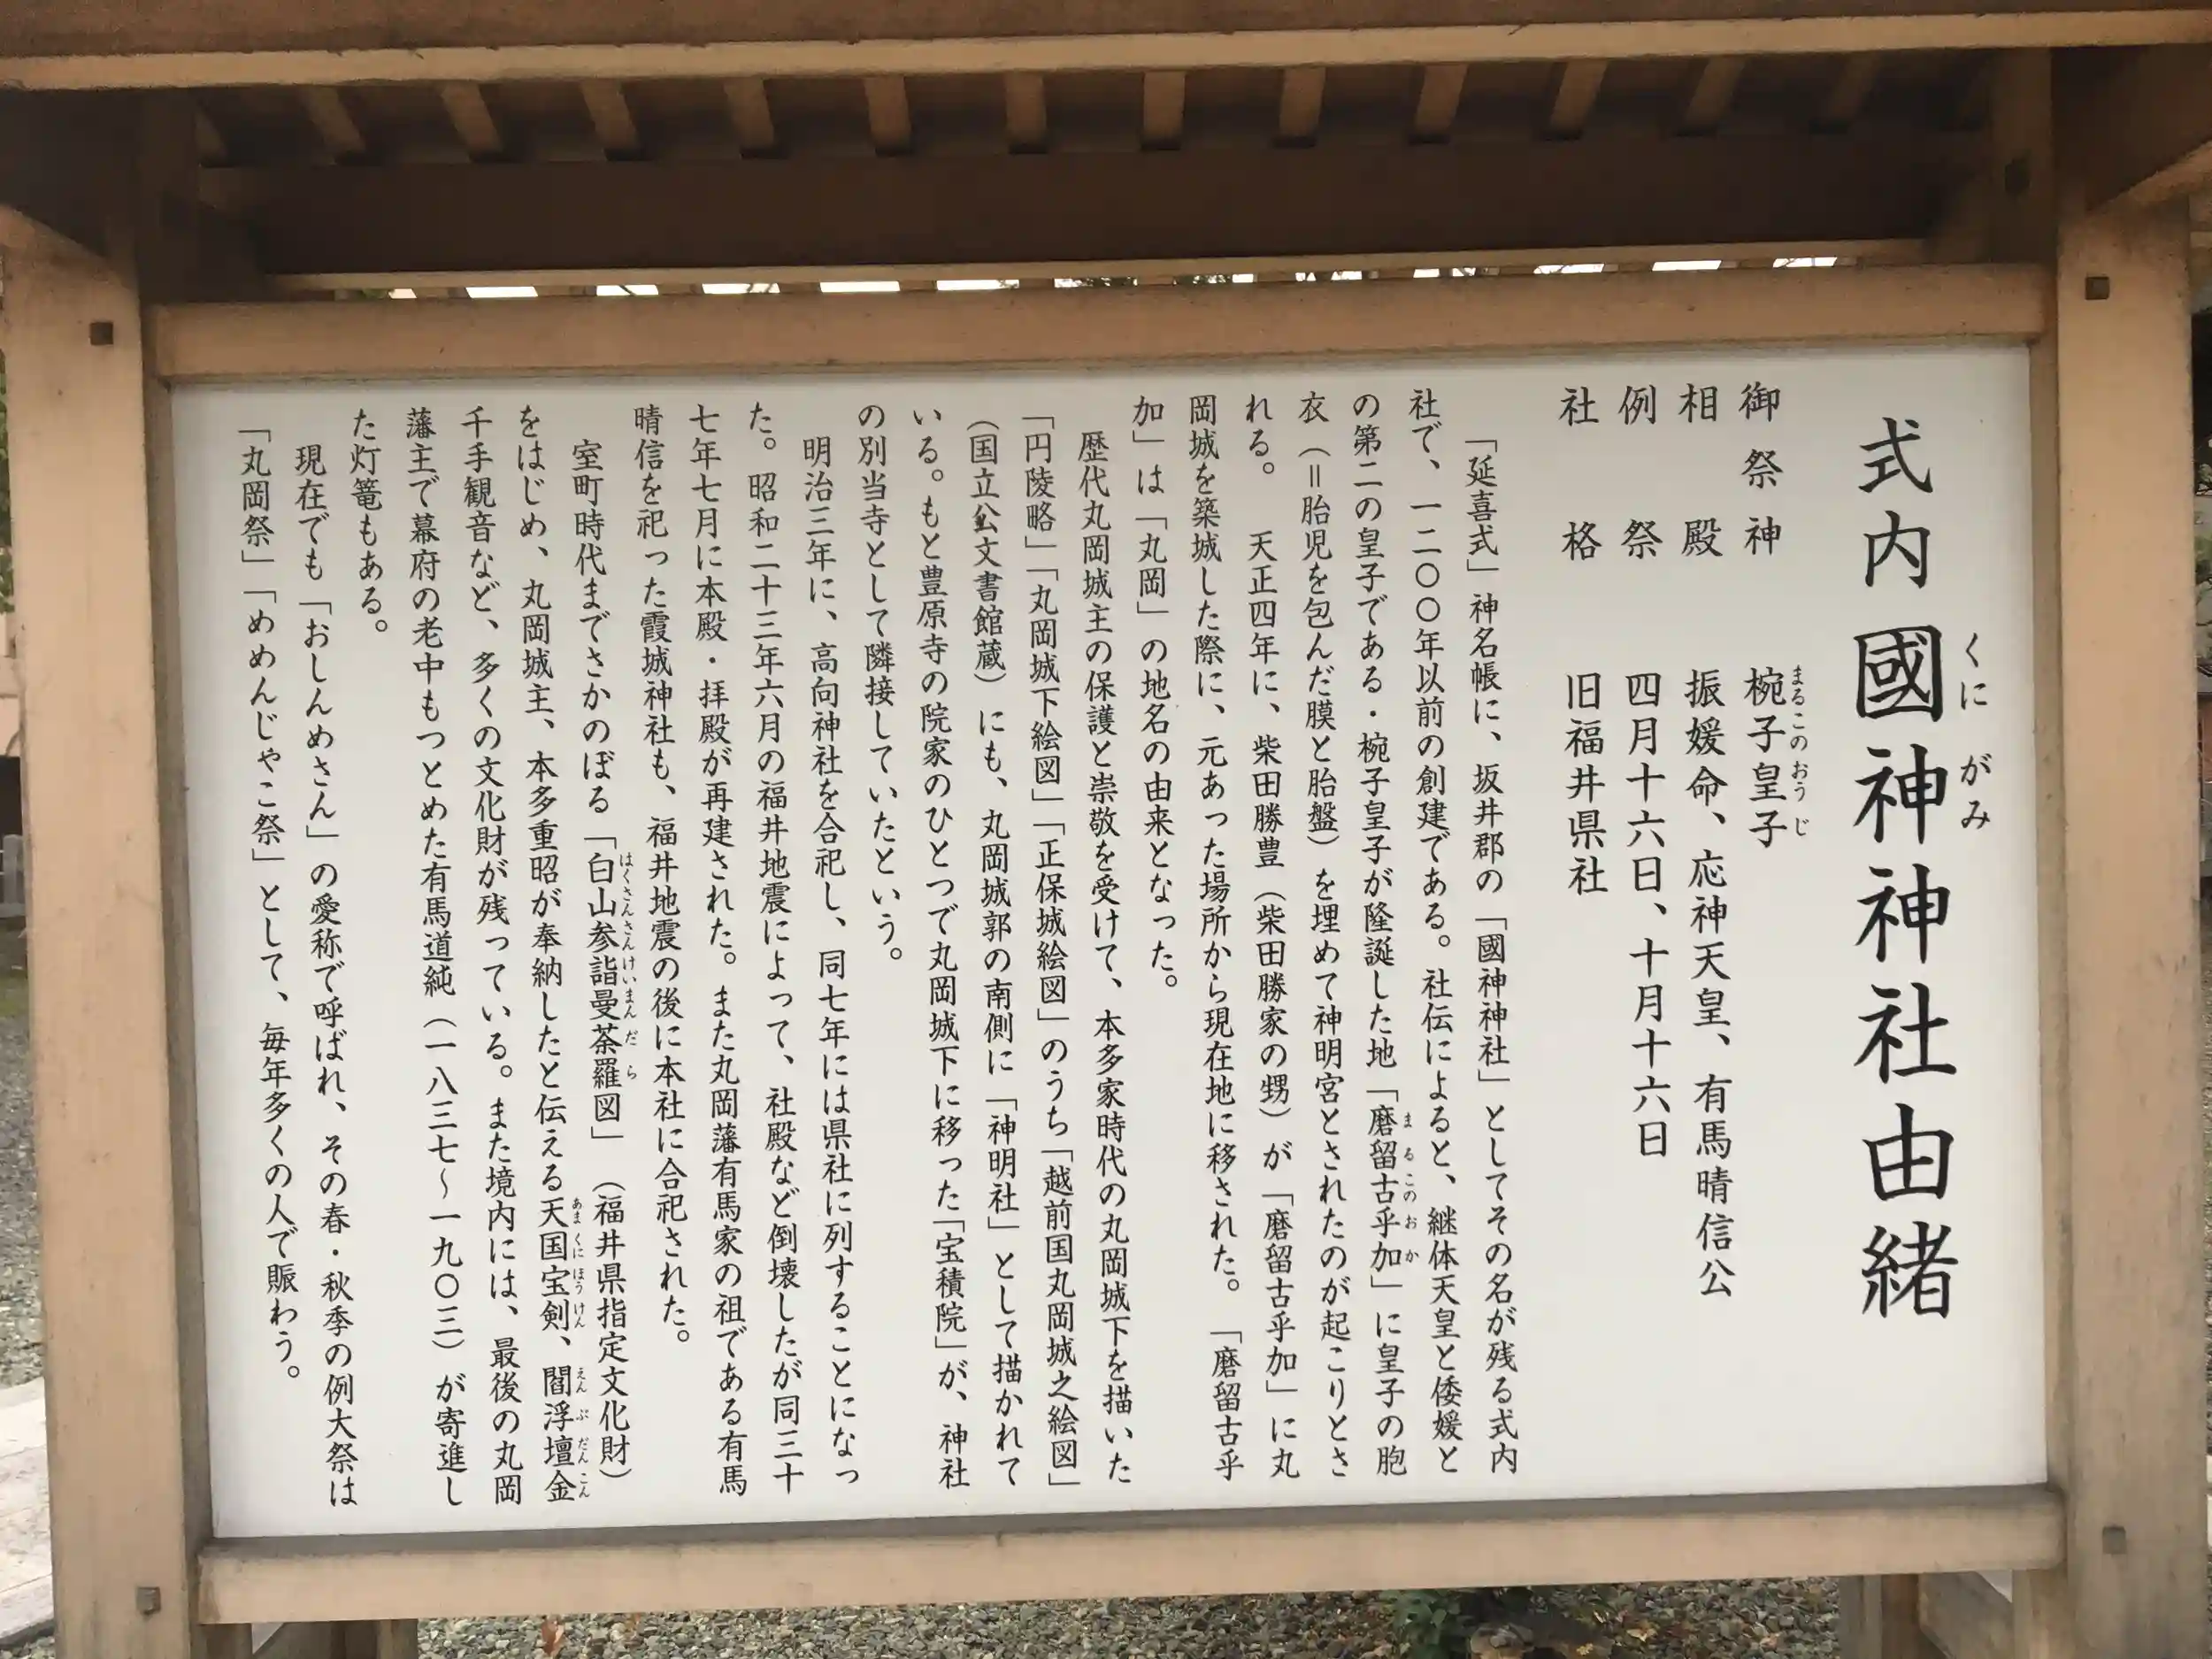 式内國神神社由緒
くにがみ
御祭神 椀子皇子
まるこのおうじ
相殿 振媛命、応神天皇、有馬晴信公
例祭 四月十六日、十月十六日
社格 旧福井県社
「延喜式」神名帳に、坂井郡の「國神神社」としてその名が残る式内
社で、一二〇〇年以前の創建である。社伝によると、継体天皇と倭媛と
の第二の皇子である・椀子皇子が隆誕した地「磨留古乎加」に皇子の胞
まるこのおか
衣（＝胎児を包んだ膜と胎盤）を埋めて神明宮とされたのが起こりとさ
れる。　天正四年に、柴田勝豊（柴田勝家の甥）が「磨留古乎加」に丸
岡城を築城した際に、元あった場所から現在地に移された。「磨留古乎
加」は「丸岡」の地名の由来となった。
歴代丸岡城主の保護と崇敬を受けて、本多家時代の丸岡城下を描いた
「円陵略」「丸岡城下絵図」「正保城絵図」のうち「越前国丸岡城之絵図」
（国立公文書館蔵）にも、丸岡城郭の南側に「神明社」として描かれて
いる。もと豊原寺の院家のひとつで丸岡城下に移った「宝積院」が、神社
の別当寺として隣接していたという。
明治三年に、高向神社を合祀し、同七年には県社に列することになっ
た。昭和二十三年六月の福井地震によって、社殿など倒壊したが同三十
七年七月に本殿・拝殿が再建された。また丸岡藩有馬家の祖である有馬
晴信を祀った霞城神社も、福井地震の後に本社に合祀された。
室町時代までさかのぼる「白山参詣曼荼羅図」（福井県指定文化財）
はくさんさんけいまんだら
をはじめ、丸岡城主、本多重昭が奉納したと伝える天国宝剣、閻浮壇金
あまくにほうけん えんぶだんこん
千手観音など、多くの文化財が残っている。また境内には、最後の丸岡
藩主で幕府の老中もつとめた有馬道純（一八三七～一九〇三）が寄進し
た灯篭もある。
現在でも「おしんめさん」の愛称で呼ばれ、その春・秋季の例大祭は
「丸岡祭」「めめんじゃこ祭」として、毎年多くの人で賑わう。